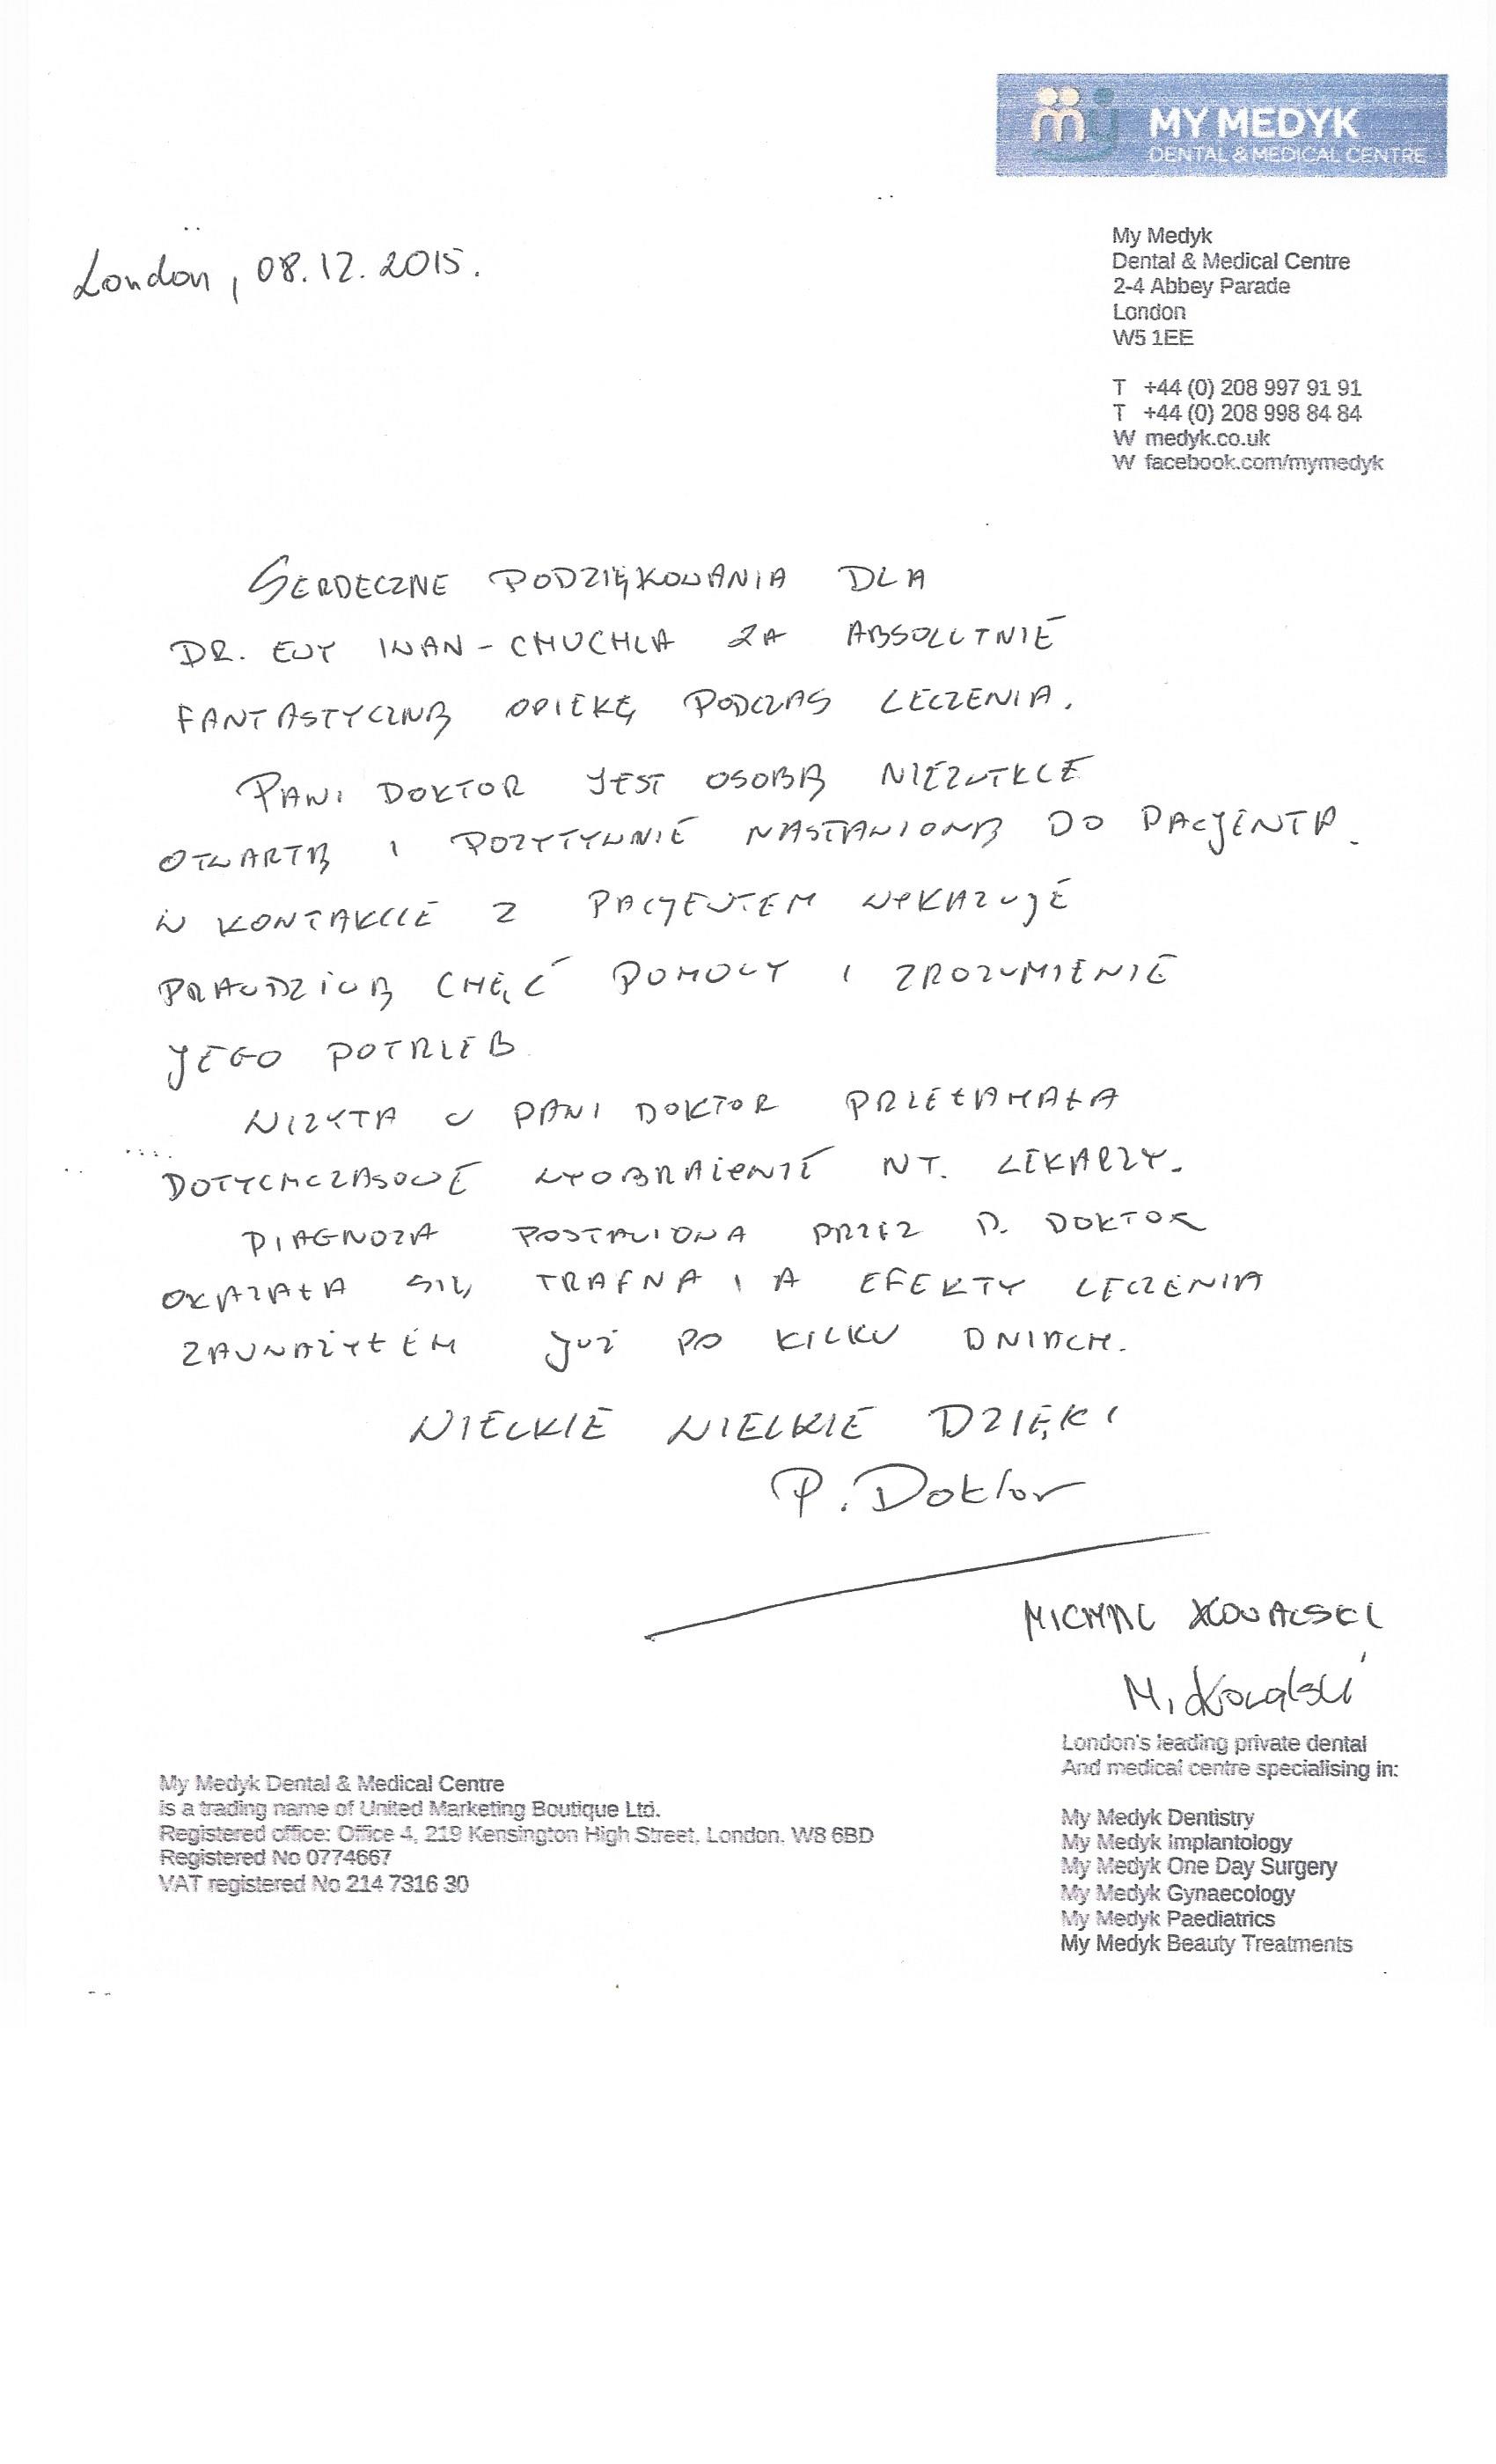 MY MEDYK
DENTAL & MEDICAL CENTRE
London, 08.12.2015.
My Medyk
Dental & Medical Centre
2-4 Abbey Parade
London
W5 1EE
T +44 (0) 208 997 91 91
T +44 (0) 208 998 84 84
W medyk.co.uk
W facebook.com/mymedyk
SERDECZNE PODZIĘKOWANIA DLA
DR. EWY IWAN-CHUCHLA ZA ABSOLUTNIE
FANTASTYCZNĄ OPIEKĘ PODCZAS LECZENIA.
PANI DOKTOR JEST OSOBĄ NIEZWYKLE
OTWARTĄ I POZYTYWNIE NASTAWIONĄ DO PACJENTA.
W KONTAKCIE Z PACJENTEM WYKAZUJE
PRAWDZIWĄ CHĘĆ POMOCY I ZROZUMIENIE
JEGO POTRZEB
WIZYTA U PANI DOKTOR PRZEŁAMAŁA
DOTYCHCZASOWE WYOBRAŻENIE NT. LEKARZY.
DIAGNOZA POSTAWIONA PRZEZ P. DOKTOR
OKAZAŁA SIĘ TRAFNA, A EFEKTY LECZENIA
ZAUWAŻYŁEM JUŻ PO KILKU DNIACH.
WIELKIE WIELKIE DZIĘKI
P. Doktor
MICHAL KOWALSKI
M. Kowalski
London's leading private dental
And medical centre specialising in:
My Medyk Dental & Medical Centre
is a trading name of United Marketing Boutique Ltd.
Registered office: Office 4, 219 Kensington High Street, London. W8 6BD
Registered No 0774667
VAT registered No 214 7316 30
My Medyk Dentistry
My Medyk Implantology
My Medyk One Day Surgery
My Medyk Gynaecology
My Medyk Paediatrics
My Medyk Beauty Treatments